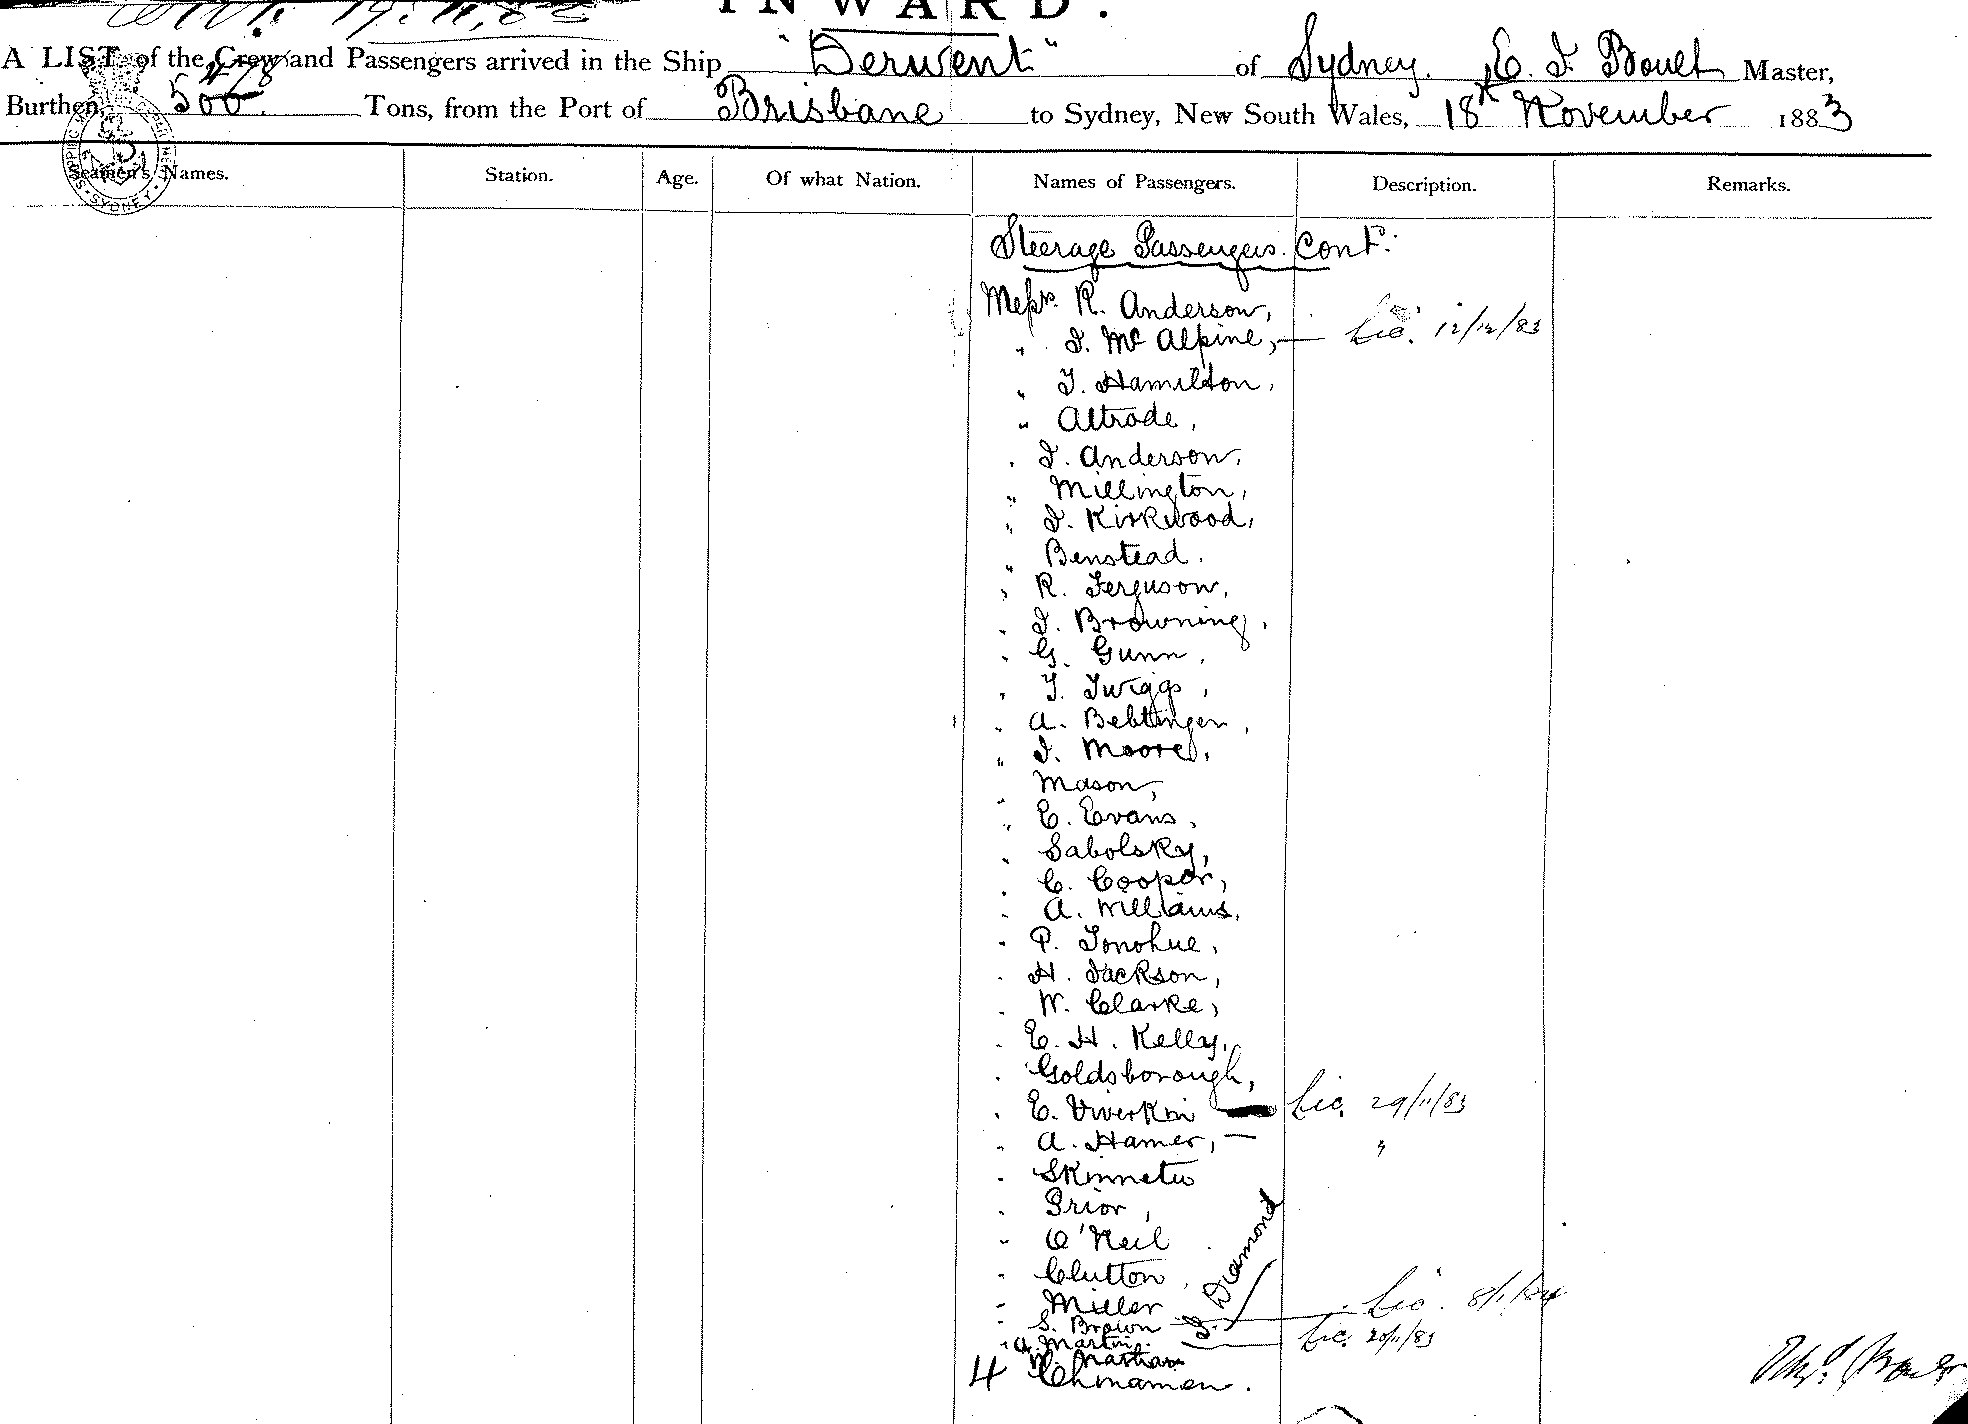 INWARD.
A LIST of the Crew and Passengers arrived in the Ship "Derwent" of Sydney. E. J. Bouet Master,
Burthen 500. 478 Tons, from the Port of Brisbane to Sydney, New South Wales, 18th November 1883
Seamen's Names. Station. Age. Of what Nation. Names of Passengers. Description. Remarks.
Steerage Passengers. Cont.
Messrs. R. Anderson,
" J. McAlpine, — Lic. 12/12/83
" T. Hamilton,
" Altrode,
" J. Anderson,
" Millington,
" J. Kirkwood,
" Benstead.
" R. Ferguson,
" J. Browning,
" G. Gunn,
" T. Twiggs,
" A. Bebtinger,
" J. Moore,
" Mason,
" E. Evans,
" Sabolsky,
" C. Cooper,
" A. Williams,
" P. Tonohue,
" H. Jackson,
" W. Clarke,
" E. H. Kelly,
" Goldsborough,
" E. Viverkin — Lic. 29/11/83
" A. Hamer, — "
" Skinnetu
" Prior,
" O'Neil
" Clutton,
" Miller
J. Diamond
" S. Brown — Lic. 8/1/84
" A. Martin. — Lic. 20/11/83
Martian
4 Chinamen.